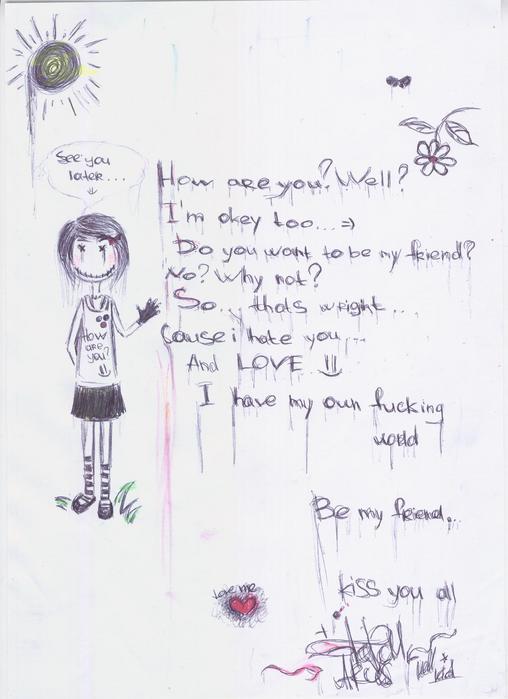 See you
later...
How are you? Well?
I'm okey too... =)
Do you want to be my friend?
No? Why not?
So... thats wright...
Cause i hate you...
And LOVE =)
I have my own fucking
world
How
are
you?
Be my friend...
kiss you all
Love me